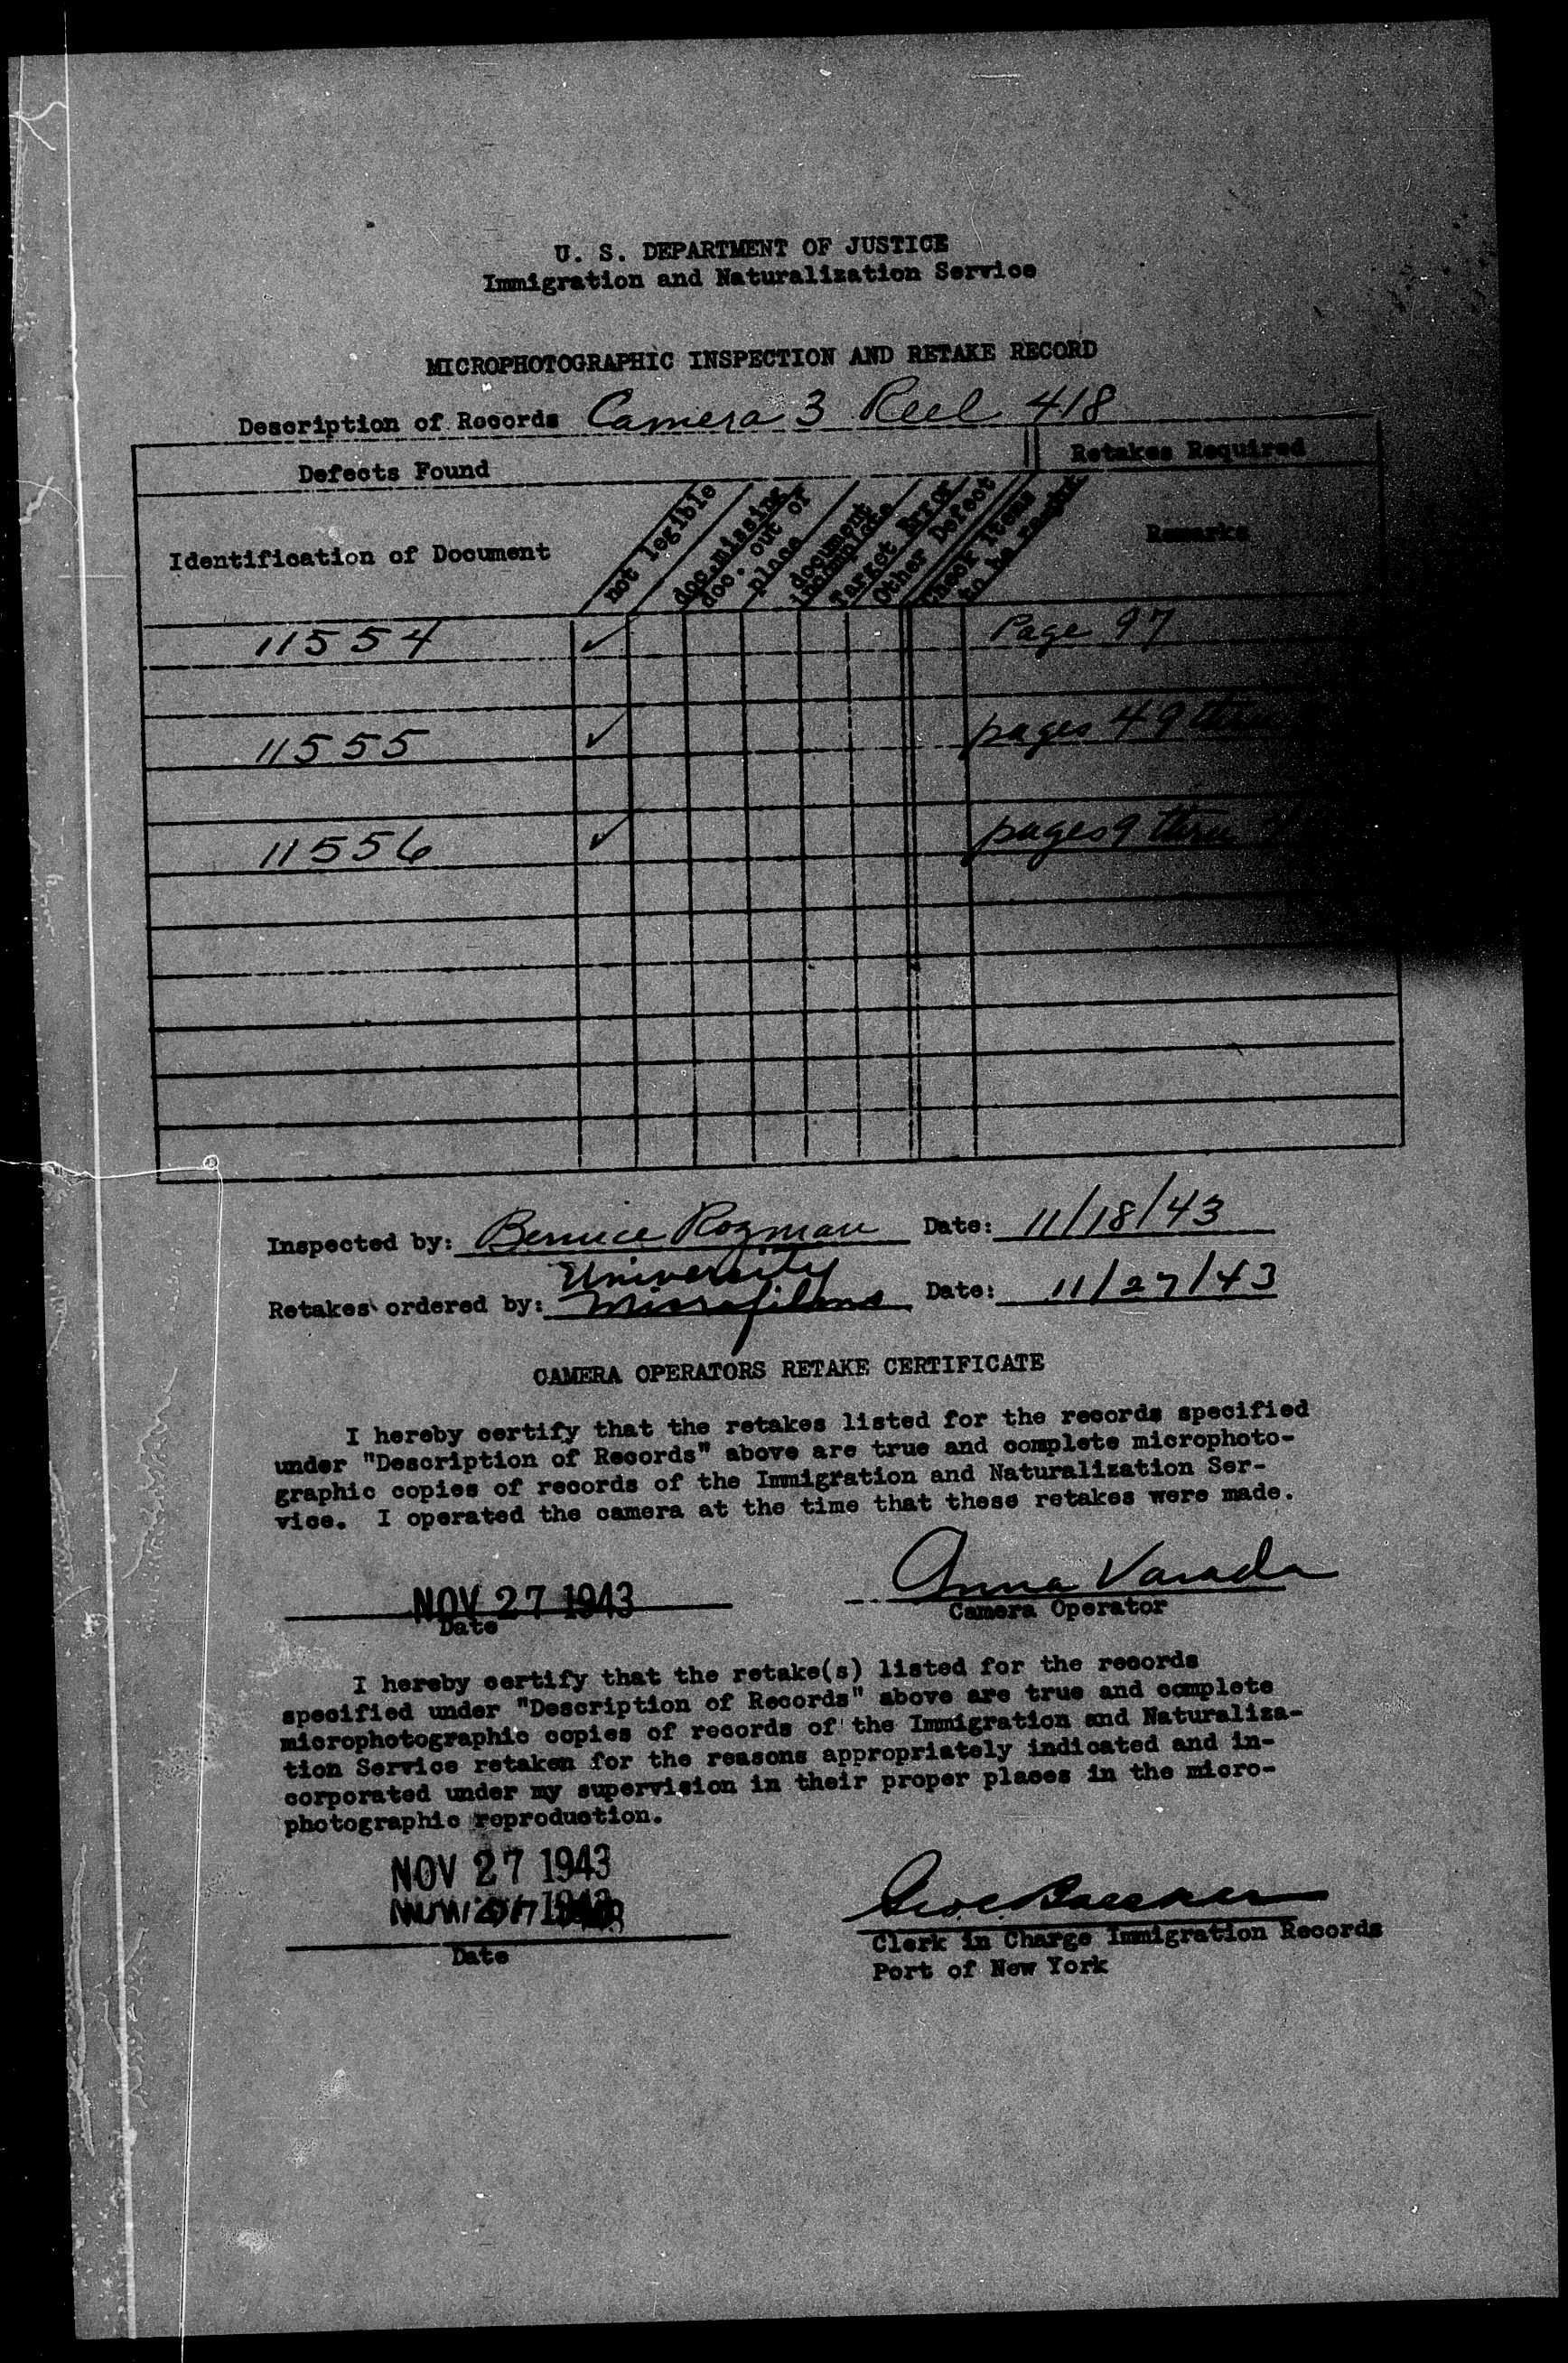 U. S. DEPARTMENT OF JUSTICE
Immigration and Naturalization Service
MICROPHOTOGRAPHIC INSPECTION AND RETAKE RECORD
Description of Records Camera 3 Reel 418
Defects Found
Retakes Required
Identification of Document
not legible
doc. missing
doc. out of
place
document
incomplete
Target Error
Other Defect
Check items
to be
Remarks
11554 ✓ Page 97
11555 ✓ pages 49 thru
11556 ✓ pages 9 thru
Inspected by: Bernice Rozman Date: 11/18/43
University
Retakes ordered by: Microfilms Date: 11/27/43
CAMERA OPERATORS RETAKE CERTIFICATE
I hereby certify that the retakes listed for the records specified
under "Description of Records" above are true and complete microphoto-
graphic copies of records of the Immigration and Naturalization Ser-
vice. I operated the camera at the time that these retakes were made.
NOV 27 1943 Anna Varada
Date Camera Operator
I hereby certify that the retake(s) listed for the records
specified under "Description of Records" above are true and complete
microphotographic copies of records of the Immigration and Naturaliza-
tion Service retaken for the reasons appropriately indicated and in-
corporated under my supervision in their proper places in the micro-
photographic reproduction.
NOV 27 1943
Clerk in Charge Immigration Records
Date
Port of New York